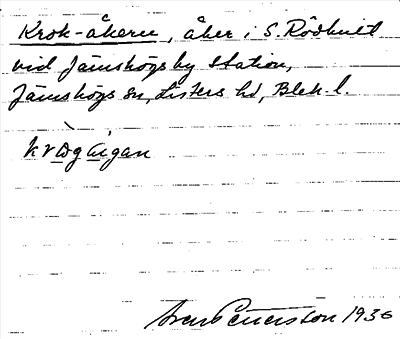 Krok-åkern, åker i S. Rödhult
vid Jämshögs by station,
Jämshögs sn, Listers hd, Blek. l.
Sven Petersson 1936